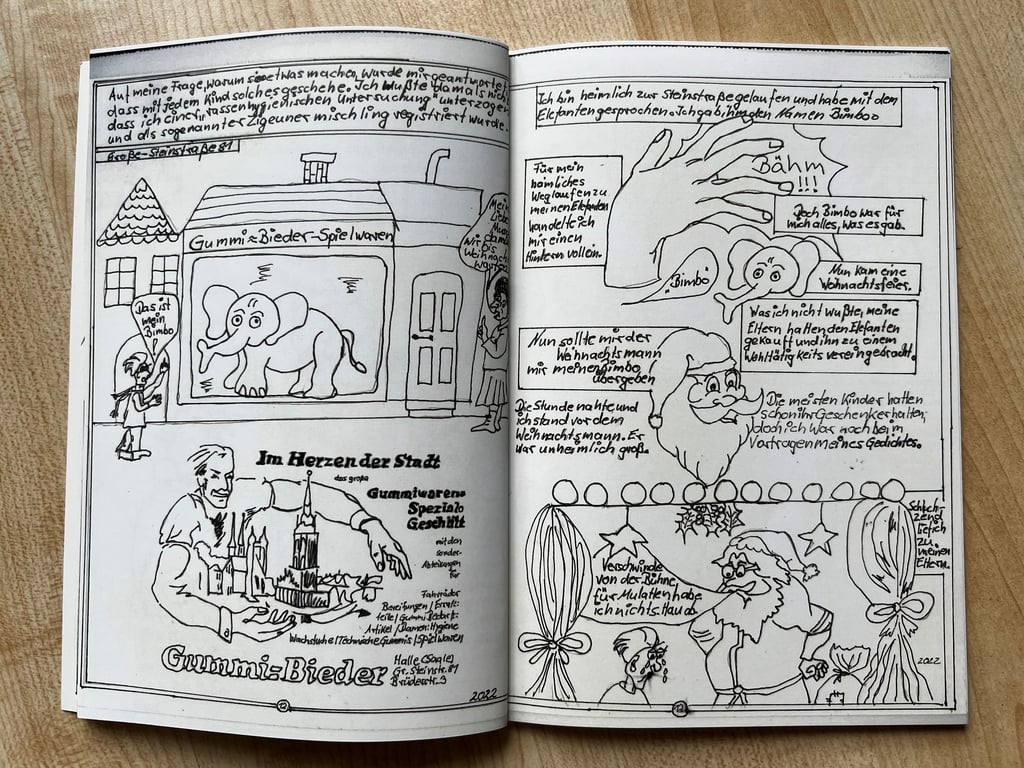 Auf meine Frage, warum sie etwas machen, wurde mir geantwortet,
dass mit jedem Kind solches geschehe. Ich wußte damals nicht,
dass ich einer „rassenhygienischen Untersuchung" unterzogen
und als sogenannter Zigeunermischling registriert wurde.
Große-Steinstraße 81
Gummi-Bieder-Spielwaren
Das ist
mein
Bimbo
Mein
Liebe
Muss
damit
Wir bis
Weihnach
warten
Im Herzen der Stadt
das große
Gummiwaren=
Spezial=
Geschäft
mit den
sonder-
Abteilungen
für
Fahrräder
Bereifungen / Ersatz-
teile / Gummi Bedarfs-
Artikel / Damen-Hygiene
Wachstuche / Technische Gummis / Spielwaren
Gummi=Bieder
Halle (Saale)
Gr. Steinstr. 81
Brüderstr. 3
2022
12
Ich bin heimlich zur Steinstraße gelaufen und habe mit dem
Elefanten gesprochen. Ich gab ihm den Namen Bimboo
Bähm
!!!
Für mein
heimliches
Weglaufen zu
meinen Elefanten
handelte ich
mir einen
Hintern voll ein.
Doch Bimbo war für
mich alles, was es gab.
Bimbo
Nun kam eine
Weihnachtsfeier.
Was ich nicht wußte, meine
Eltern hatten den Elefanten
gekauft und ihn zu einem
Wohltätigkeitsverein gebracht.
Nun sollte mir der
Weihnachtsmann
mir meinen Bimbo
übergeben
Die Stunde nahte und
ich stand vor dem
Weihnachtsmann. Er
war unheimlich groß.
Die meisten Kinder hatten
schon ihr Geschenk erhalten,
doch ich war noch beim
Vortragen meines Gedichtes.
Schluch-
zend
lief ich
zu
meinen
Eltern.
Verschwinde
von der Bühne,
für Mulatten habe
ich nichts. Hau ab
2022
12